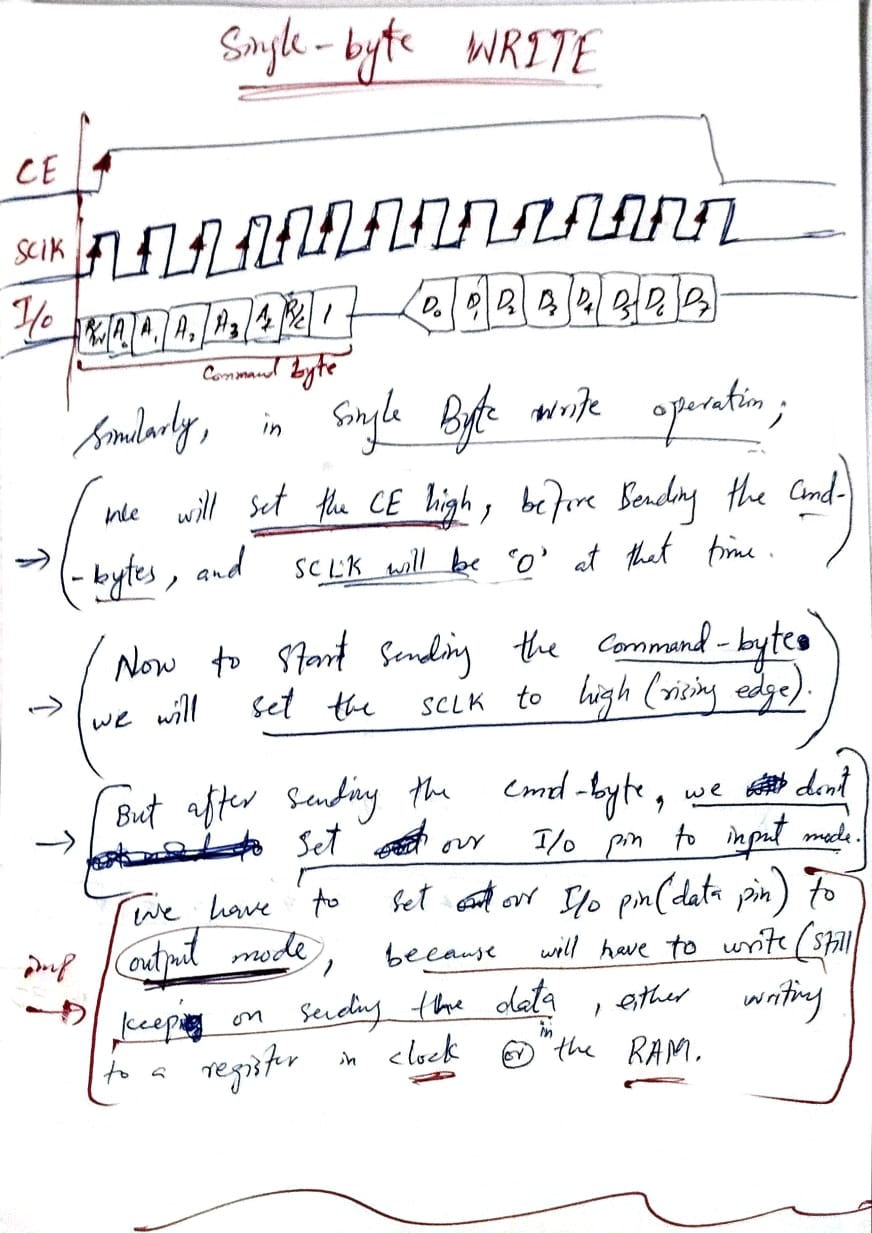 Single-byte WRITE
CE
SCLK
I/O R/W A0 A1 A2 A3 A4 R/C 1 D0 D1 D2 D3 D4 D5 D6 D7
Command byte
Similarly, in Single Byte write operation;
→ (We will set the CE high, before sending the Cmd-
-bytes, and SCLK will be '0' at that time.)
→ (Now to start sending the command-bytes
we will set the SCLK to high (rising edge).)
→ But after sending the cmd-byte, we dont
set our I/O pin to input mode.
We have to set our I/O pin (data pin) to
imp → output mode, because will have to write (still
keeping on sending the data, either writing
to a register in clock or in the RAM.